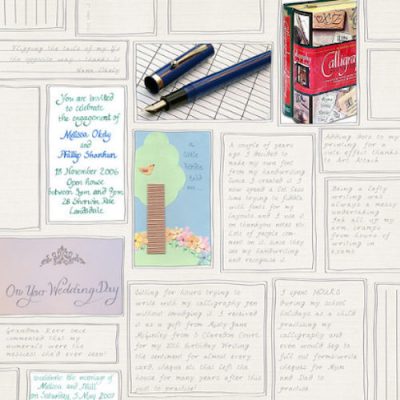 Flipping the tails of my Y's
the opposite way... thanks to
Calligraphy
You are invited
to celebrate
the engagement of
Melissa and
Phillip
18 November 2006
Open house
between 3pm and 9pm
28 Rise
Landsdale
a
little
birdie
told
me...
A couple of years
ago I decided to
make my own font
from my handwriting
Once I created it I
now spend a lot less
time trying to fiddle
with fonts for my
layouts and I use it
on thankyou notes etc.
Lots of people com-
ment on it since they
see my handwriting
and recognise it
Adding dots to my
printing, for a
cute effect, thanks
to Art Attack
Being a lefty
writing was
always a messy
undertaking
Ink all up my
arm, cramps
from hours of
writing in
exams
On Your Wedding Day
Grandma Rose once
commented that my
numerals were the
neatest she'd ever seen!
Sitting for hours trying to
write with my calligraphy pen
without smudging it. I received
it as a gift from
Clarendon Court
for my 21st Birthday Writing
the sentiment for almost every
card, cheque etc that left the
house for many years after this
just to practise!
I spent HOURS
during my school
holidays as a child
practising my
calligraphy and
even would beg to
fill out forms/write
cheques for Mum
and Dad to
practise
celebrate the marriage of
Melissa and Phill
on Saturday, 5 May 2007